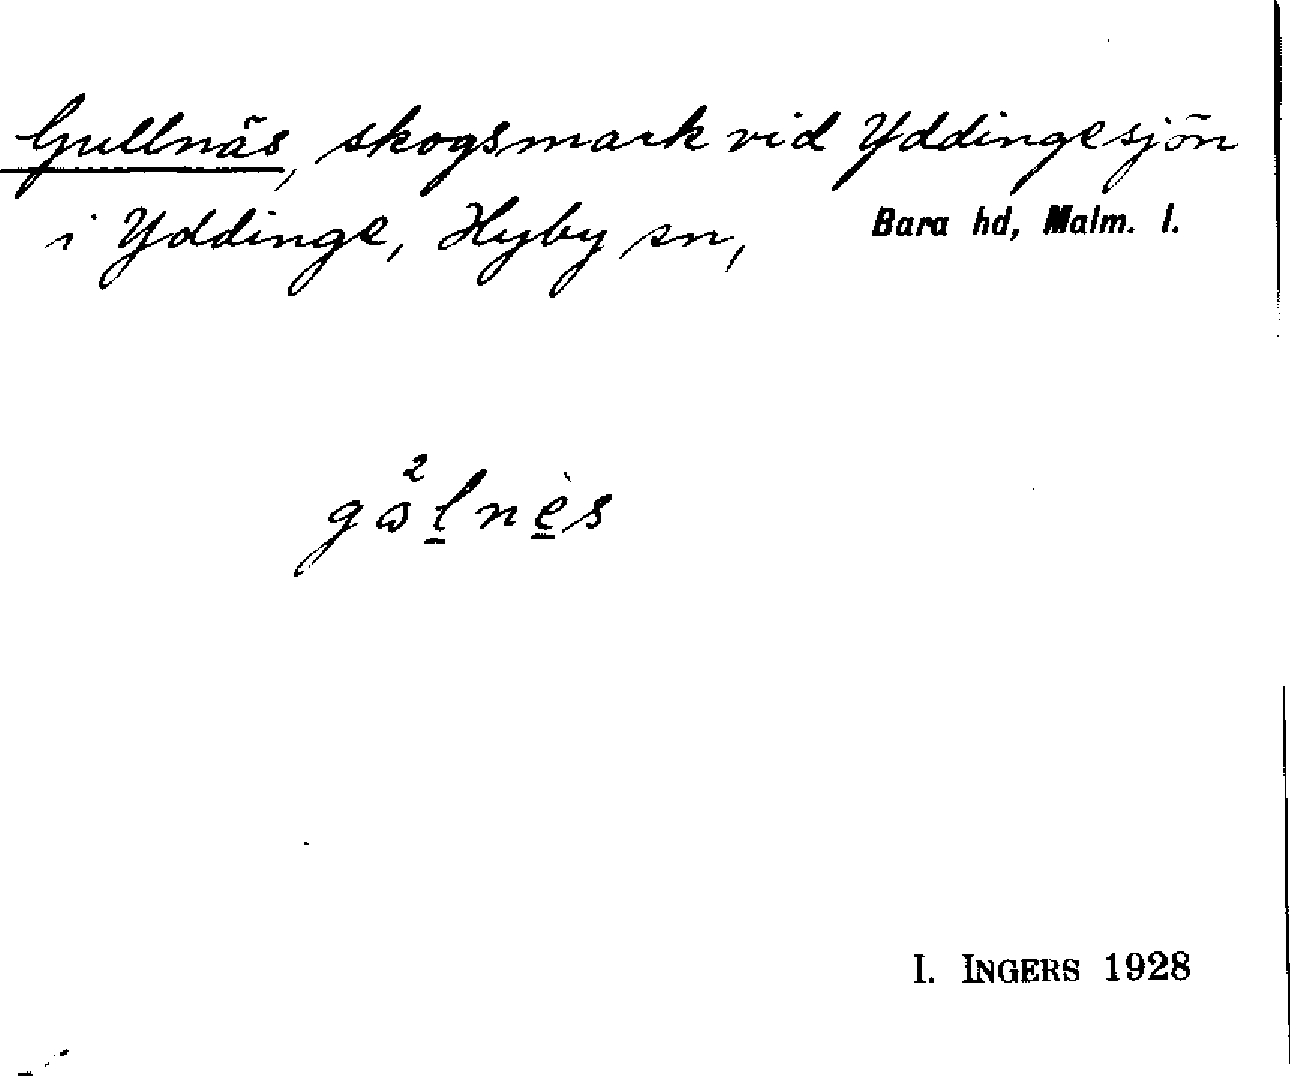 Gullnäs, skogsmark vid Yddingesjön
i Yddinge, Hyby sn, Bara hd, Malm. l.
I. INGERS 1928